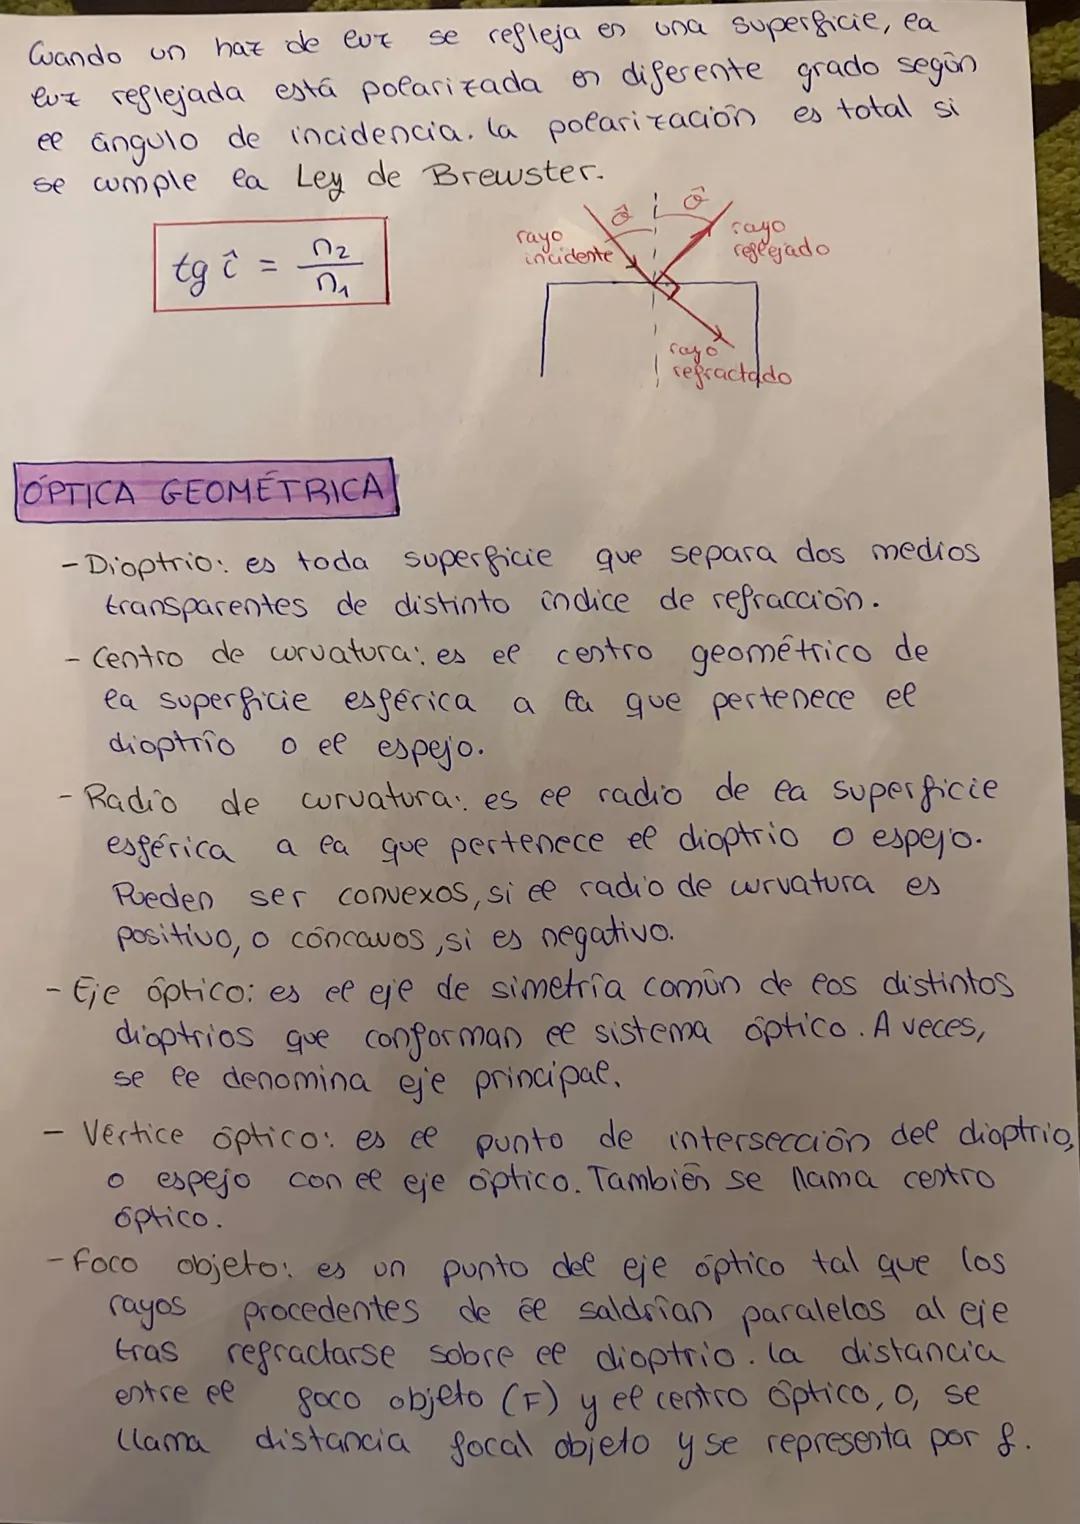 Cuando un haz de luz se refleja en una superficie, la
luz reflejada está polarizada en diferente grado según
el ángulo de incidencia. La polarización es total si
se cumple la Ley de Brewster.
tg î = n2/n1
ô ô
rayo incidente
rayo reflejado
rayo refractado
ÓPTICA GEOMÉTRICA
- Dioptrio: es toda superficie que separa dos medios
transparentes de distinto índice de refracción.
- Centro de curvatura: es el centro geométrico de
la superficie esférica a la que pertenece el
dioptrio o el espejo.
- Radio de curvatura: es el radio de la superficie
esférica a la que pertenece el dioptrio o espejo.
Pueden ser convexos, si el radio de curvatura es
positivo, o cóncavos, si es negativo.
- Eje óptico: es el eje de simetría común de los distintos
dioptrios que conforman el sistema óptico. A veces,
se le denomina eje principal.
- Vértice óptico: es el punto de intersección del dioptrio,
o espejo con el eje óptico. También se llama centro
óptico.
- Foco objeto: es un punto del eje óptico tal que los
rayos procedentes de él saldrían paralelos al eje
tras refractarse sobre el dioptrio. La distancia
entre el foco objeto (F) y el centro óptico, O, se
llama distancia focal objeto y se representa por f.